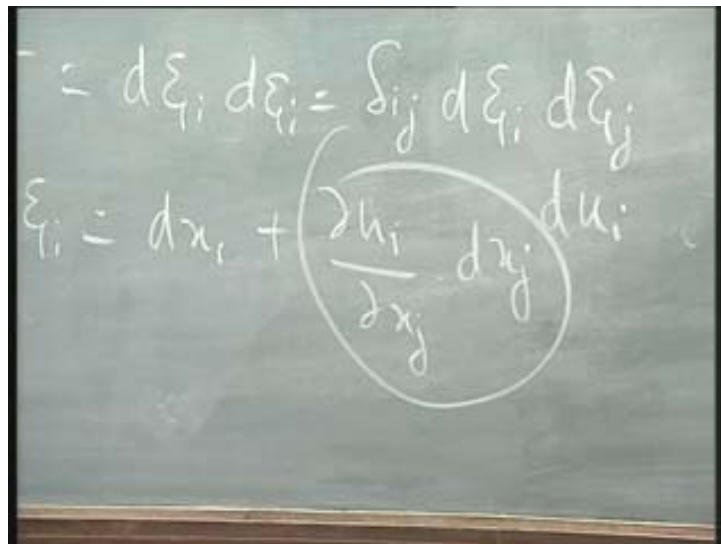 = dξi dξi = δij dξi dξj
ξi = dxi + ∂ui/∂xj dxj dui